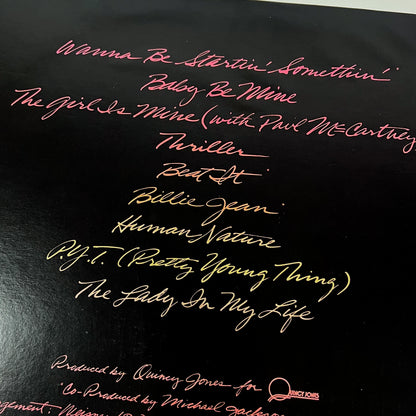 Wanna Be Startin' Somethin'
Baby Be Mine
The Girl Is Mine (with Paul McCartney
Thriller
Beat It
Billie Jean
Human Nature
P.Y.T. (Pretty Young Thing)
The Lady In My Life
Produced by Quincy Jones for
QUINCY JONES
Co-Produced by Michael Jackson